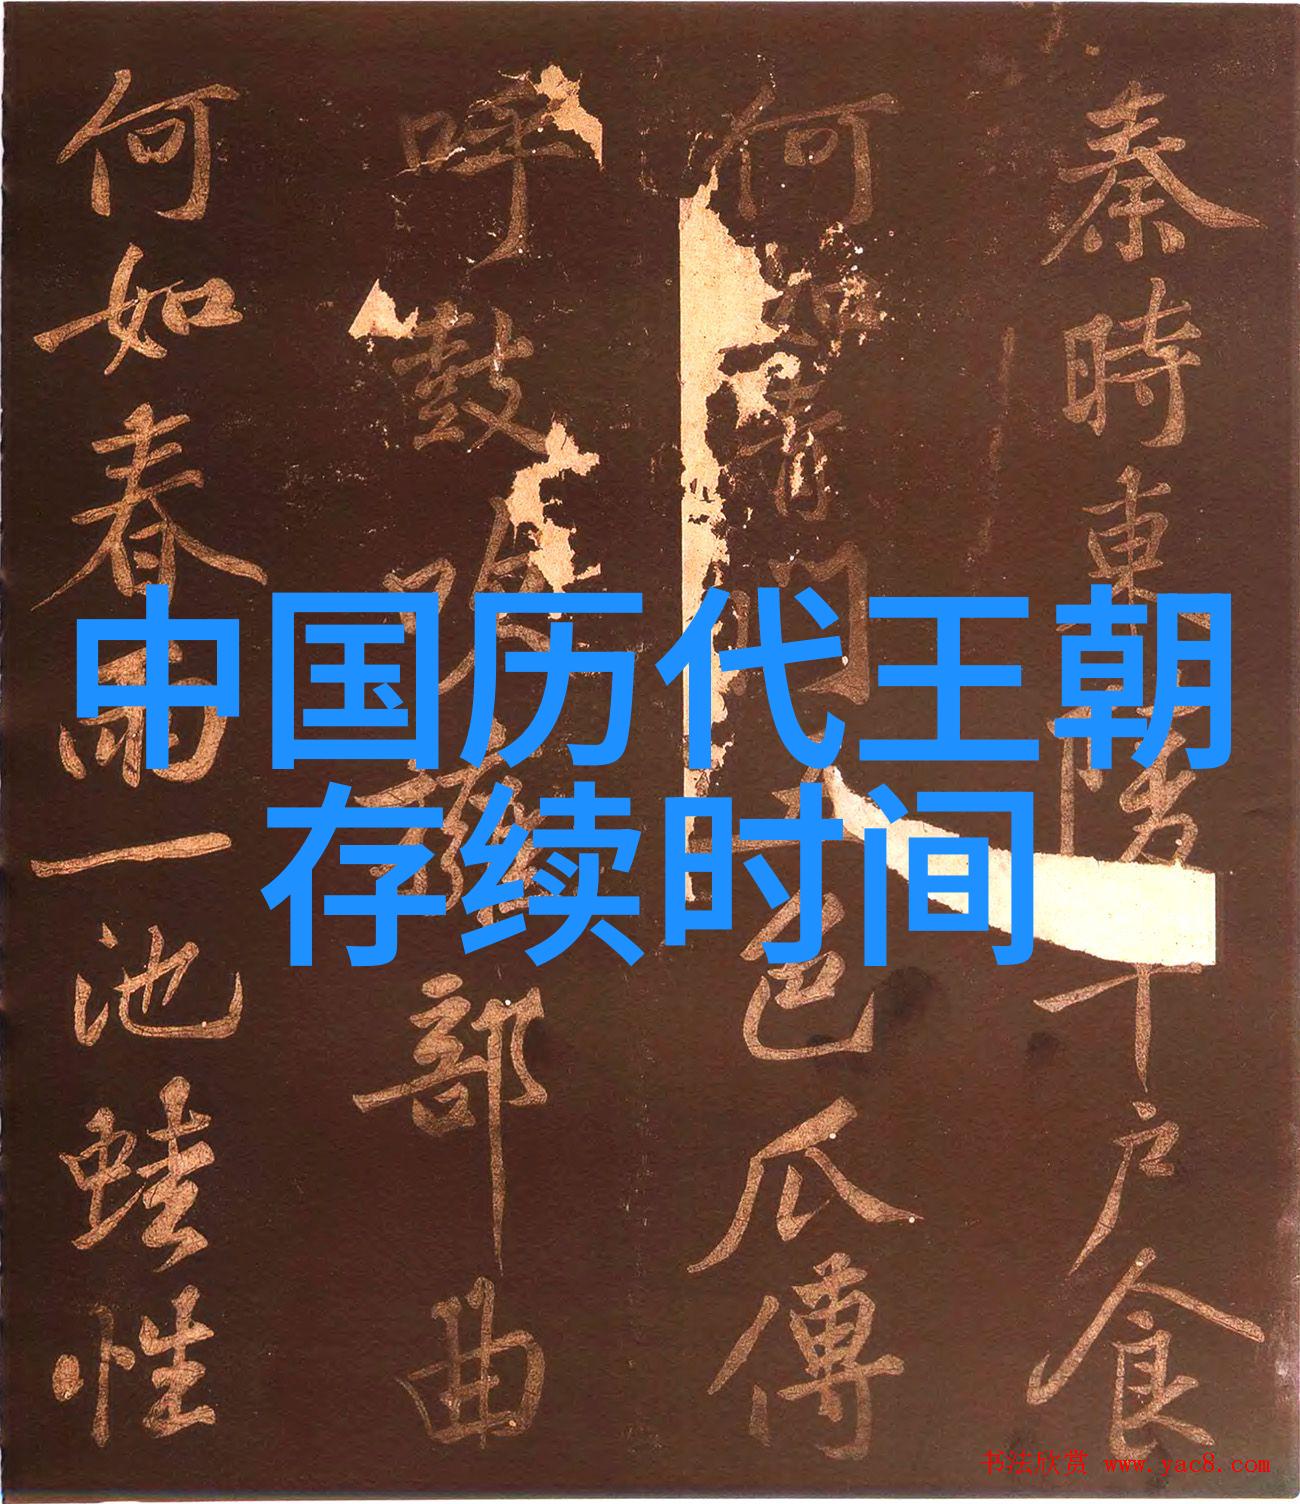 中国历代王朝
存续时间
秦時東陵千戶食
何如青門五色瓜傳
呼鼓吹嚴部曲
何如春雨一池蛙性
书法欣赏 www.yac8.com